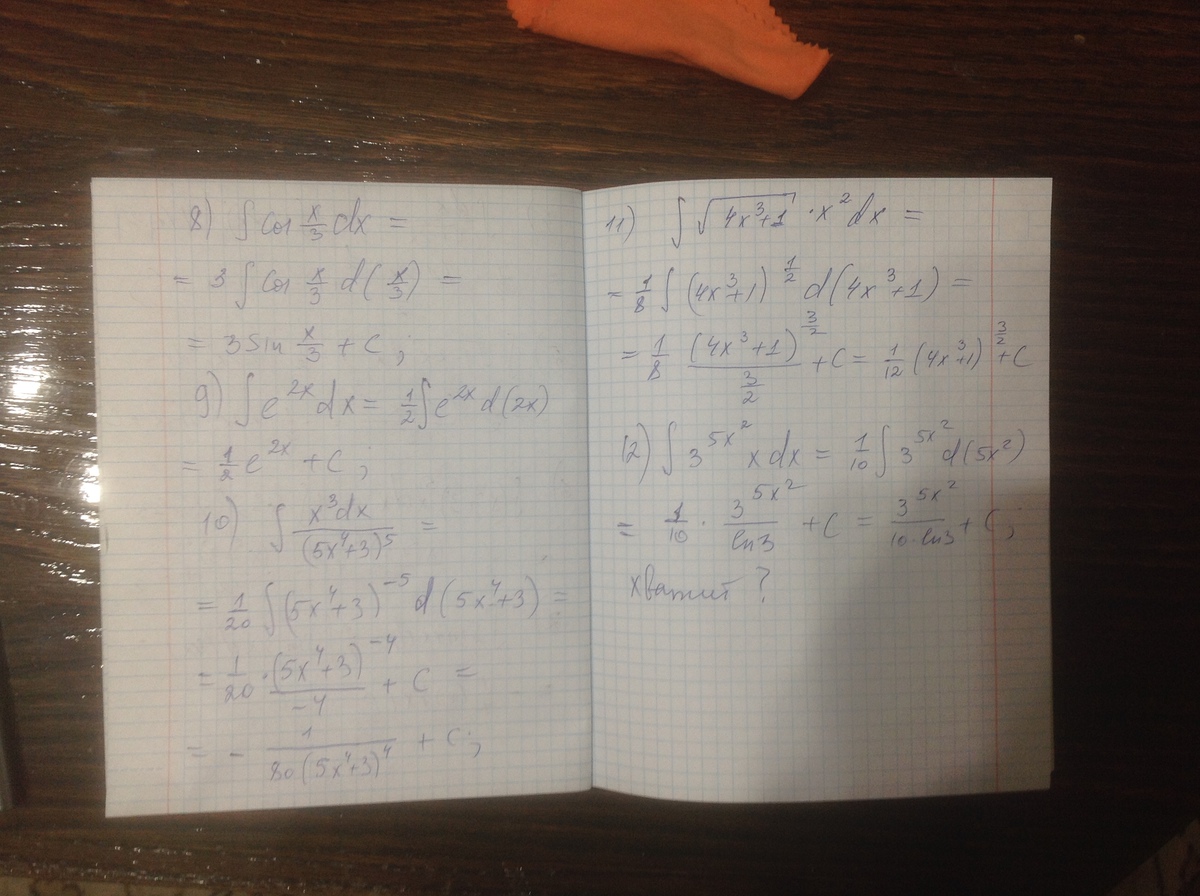 8) ∫ cos x/3 dx =
= 3 ∫ cos x/3 d(x/3) =
= 3 sin x/3 + C ;
9) ∫ e^{2x} dx = 1/2 ∫ e^{2x} d(2x)
= 1/2 e^{2x} + C ;
10) ∫ x³dx/(5x⁴+3)⁵ =
= 1/20 ∫ (5x⁴+3)^{-5} d(5x⁴+3) =
= 1/20 · (5x⁴+3)^{-4}/-4 + C =
= - 1/80(5x⁴+3)⁴ + C ;
11) ∫ √(4x³+1) · x² dx =
= 1/8 ∫ (4x³+1)^{1/2} d(4x³+1) =
= 1/8 (4x³+1)^{3/2}/(3/2) + C = 1/12 (4x³+1)^{3/2} + C
12) ∫ 3^{5x²} x dx = 1/10 ∫ 3^{5x²} d(5x²)
= 1/10 · 3^{5x²}/ln3 + C = 3^{5x²}/10·ln3 + C ;
хватит ?